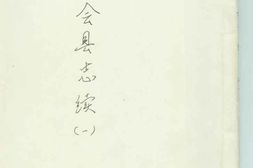 会县志续(一)